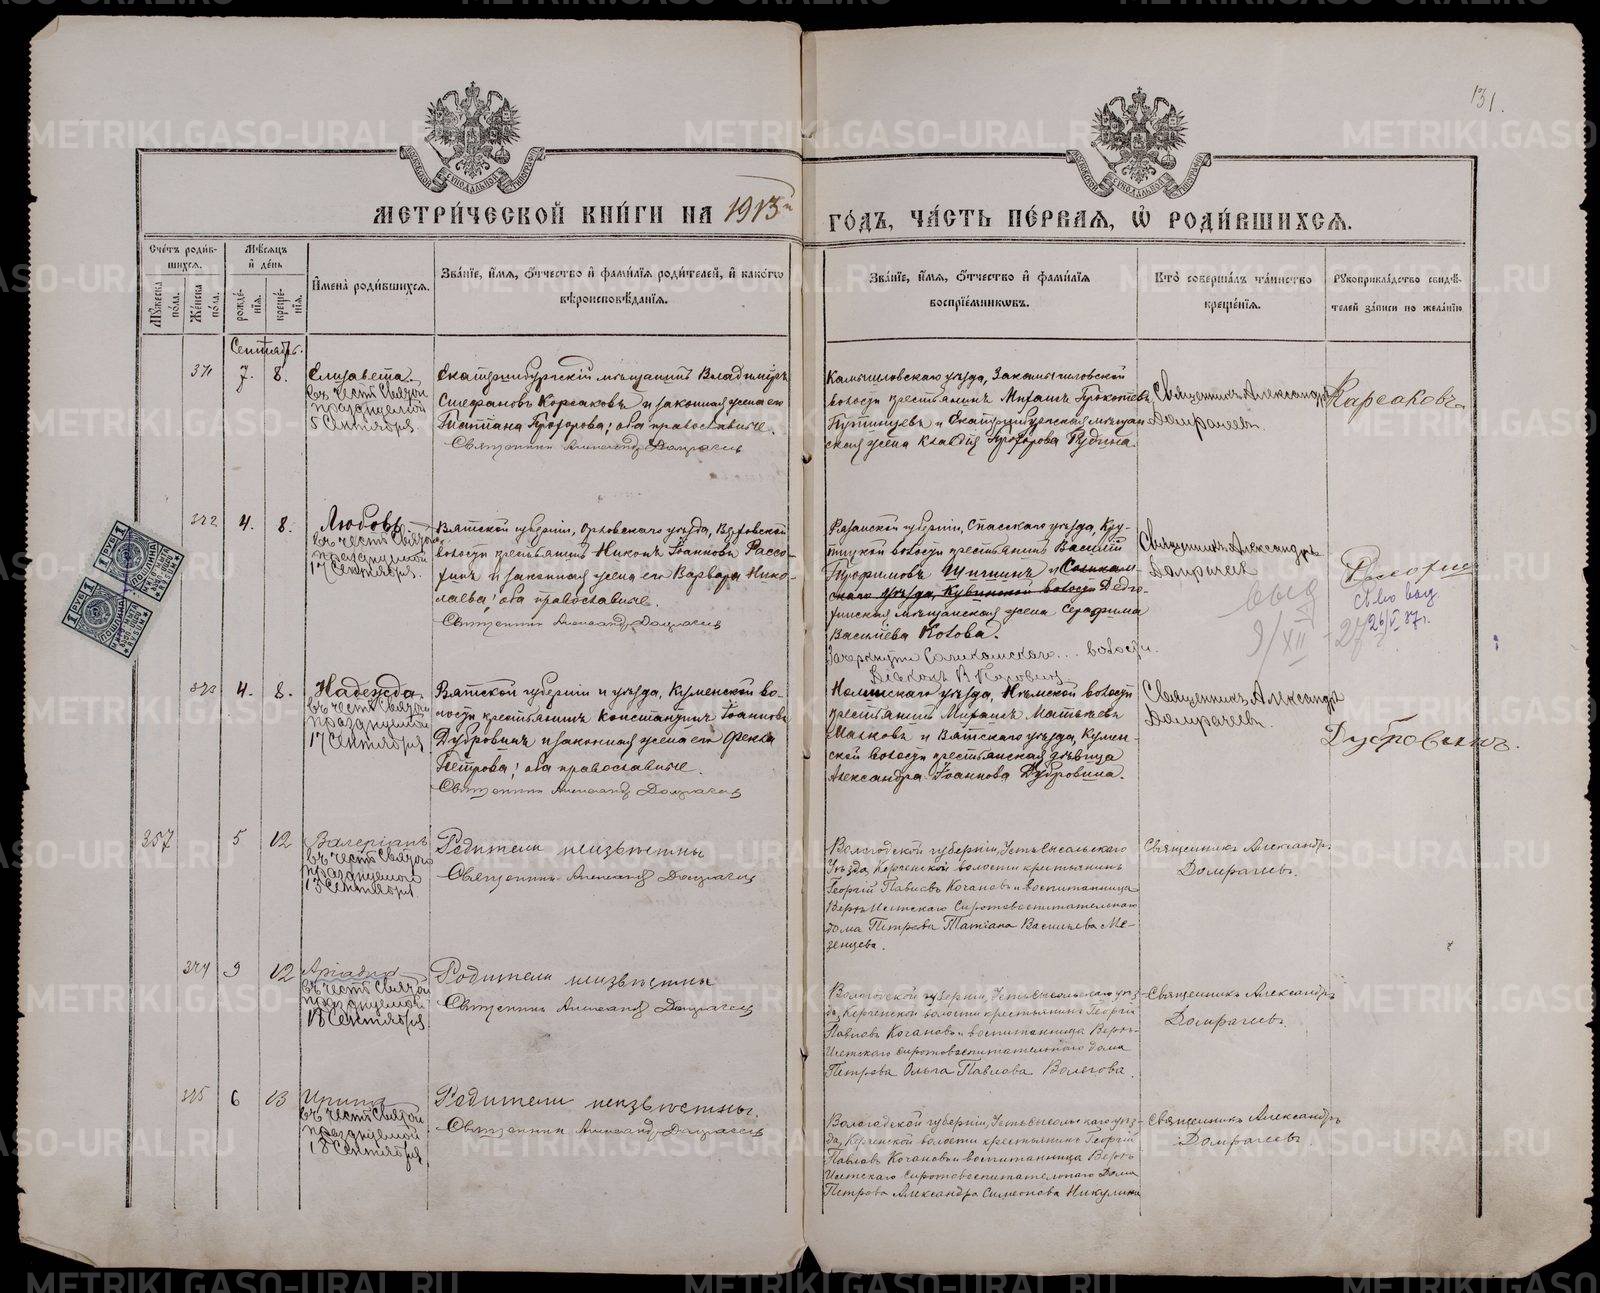 131.
МЕТРИ́ЧЕСКОЙ КНИ́ГИ НА 1913й ГО́ДЪ, ЧА́СТЬ ПЕ́РВАѦ, Ѽ РОДИ́ВШИХСѦ.
Сче́тъ роди́вшихсѧ.
Мꙋ́жеска по́ла.
Же́нска по́ла.
Мѣ́сѧцъ и҆ де́нь
рожде́нїѧ.
креще́нїѧ.
И҆мена̀ роди́вшихсѧ.
Зва́нїе, и҆́мѧ, ѻ҆́тчество и҆ фами́лїѧ роди́телей, и҆ како́гѡ вѣроисповѣ́данїѧ.
Зва́нїе, и҆́мѧ, ѻ҆́тчество и҆ фами́лїѧ воспрїе́мникѡвъ.
Кто̀ соверша́лъ та́инство креще́нїѧ.
Рꙋкоприкла́дство свидѣ́телей за́писи по жела́нїю.
Сентябрь.
371 7. 8. Елизавета.
въ честь Святой
празднуемой
5 Сентября.
Екатеринбургскiй мѣщанинъ Владимiръ
Стефановъ Корсаковъ и законная жена его
Татiана Прохорова; оба православные.
Священник Александр Домрачев
Камышловскаго уѣзда, Закамышловской
волости крестьянинъ Михаилъ Прокопiевъ
и Екатеринбургская мѣщан
ская жена Клавдiя Прохорова Рудина.
Священникъ Александръ
Домрачевъ.
Карсаковъ
372 4. 8. Любовь.
въ честь Святой
празднуемой
17 Сентября.
Вятской губернiи, Орловскаго уѣзда, Верховской
волости крестьянинъ Никонъ Iоанновъ Рассо-
хинъ и законная жена его Варвара Нико-
лаева; оба православные.
Священник Александр Домрачев
Рязанской губернiи, Спасскаго уѣзда, Кру-
тицкой волости крестьянинъ Василiй
Трофимовъ Шигинъ и Соликам-
скаго уѣзда, волости
мѣщанская жена Серафима
Васильева Котова.
Зачеркнуто Соликамскаго... волости.
Дiаконъ
Священникъ Александръ
Домрачев
выд
9/XII - 27 г.
Св-во выд
26/V 87 г.
373 4. 8. Надежда.
въ честь Святой
празднуемой
17 Сентября.
Вятской губернiи и уѣзда, Куменской во-
лости крестьянинъ Константинъ Iоанновъ
Дубровинъ и законная жена его Фекла
Петрова; оба православные.
Священник Александр Домрачев
Нолинскаго уѣзда, Нѣмской волости
крестьянинъ Михаилъ Матвѣевъ
Малковъ и Вятскаго уѣзда, Кумен-
ской волости крестьянская дѣвица
Александра Iоаннова Дубровина.
Священникъ Александръ
Домрачевъ.
Дубровинъ.
357 5 12 Валерiанъ
въ честь Святого
празднуемой
13 Сентября
Родители неизвѣстны
Священник Александр Домрачев
Вологодской губернiи, Устьсысольскаго
уѣзда, Керченской волости крестьянинъ
Георгiй Павловъ Качановъ и воспитанница
Верхъ Исетскаго Сиротовоспитательнаго
дома Петрова Татiана Васильева Ме-
зенцева.
Священникъ Александръ
Домрачевъ.
374 9 12 Арiадна
въ честь Святой
празднуемой
18 Сентября
Родители неизвѣстны
Священник Александр Домрачев
Вологодской губернiи, Устьсысольскаго уѣз-
да, Керченской волости крестьянинъ Георгiй
Павловъ Качановъ и воспитанница Верхъ-
Исетскаго сиротовоспитательнаго дома
Петрова Ольга Павлова Волегова.
Священникъ Александръ
Домрачевъ
375 6 13 Ирина
въ честь Святой
празднуемой
18 Сентября
Родители неизвѣстны.
Священник Александр Домрачев
Вологодской губернiи, Устьсысольскаго уѣз-
да, Керченской волости крестьянинъ Георгiй
Павловъ Качановъ и воспитанница Верхъ
Исетскаго Сиротовоспитательнаго Дома
Петрова Александра Симеонова Никулина
Священникъ Александръ
Домрачевъ
METRIKI.GASO-URAL.RU